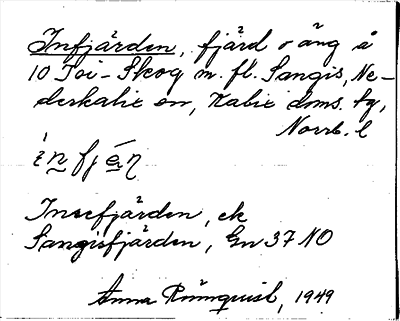 Infjärden, fjärd o äng å
10 Toi-Skog m. fl. Sangis, Ne-
derkalix sn, Kalix doms. fg,
Norrb. l
Inrefjärden, ek
Sangisfjärden, Gn 37 NO
Anna Rönnquist, 1949